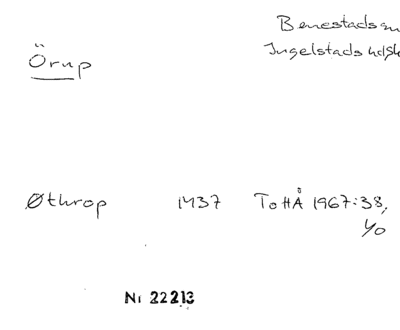 Benestads sn
Örup
Ingelstads hd Sk
Øthrop 1437 ToHÅ 1967:38,
40
Nr 22213